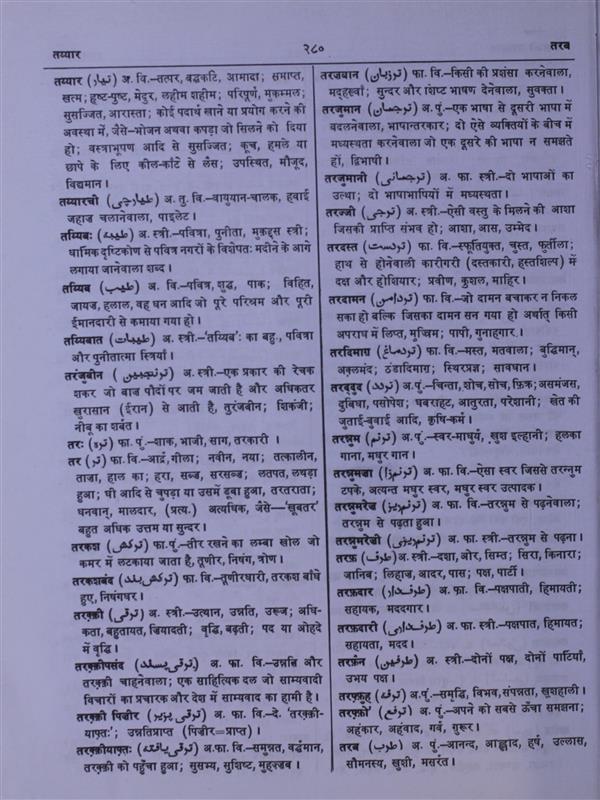 तय्यार
२८०
तरब
तय्यार (تیار) अ. वि.–तत्पर, बद्धकटि, आमादा; समाप्त,
खत्म; हृष्ट-पुष्ट, मेदुर, लहीम शहीम; परिपूर्ण, मुकम्मल;
सुसज्जित, आरास्ता; कोई पदार्थ खाने या प्रयोग करने की
अवस्था में, जैसे–भोजन अथवा कपड़ा जो सिलने को दिया
हो; वस्त्राभूषण आदि से सुसज्जित; कूच, हमले या
छापे के लिए कील-काँटे से लैस; उपस्थित, मौजूद,
विद्यमान।
तय्यारची (طیارچی) अ. तु. वि.–वायुयान-चालक, हवाई
जहाज चलानेवाला, पाइलेट।
तय्यिबः (طیبہ) अ. स्त्री.–पवित्रा, पुनीता, मुक़द्दस स्त्री;
धार्मिक दृष्टिकोण से पवित्र नगरों के विशेषतः मदीने के आगे
लगाया जानेवाला शब्द।
तय्यिब (طیب) अ. वि.–पवित्र, शुद्ध, पाक; विहित,
जायज, हलाल, वह धन आदि जो पूरे परिश्रम और पूरी
ईमानदारी से कमाया गया हो।
तय्यिबात (طیبات) अ. स्त्री.–'तय्यिबः' का बहु., पवित्रा
और पुनीतात्मा स्त्रियाँ।
तरंजुबीन (ترنجبین) अ. स्त्री.–एक प्रकार की रेचक
शकर जो बाज़ पौदों पर जम जाती है और अधिकतर
खुरासान (ईरान) से आती है, तुरंजबीन; शिकंजी;
नीबू का शर्बत।
तरः (ترہ) फा. पुं.–शाक, भाजी, साग, तरकारी।
तर (تر) फा. वि.–आर्द्र, गीला; नवीन, नया; तत्कालीन,
ताजा, हाल का; हरा, सब्ज, सरसब्ज; लतपत, लथड़ा
हुआ; घी आदि से चुपड़ा या उसमें डूबा हुआ, तरतराता;
धनवान्, मालदार, (प्रत्य.) अत्यधिक, जैसे–'खूबतर'
बहुत अधिक उत्तम या सुन्दर।
तरकश (ترکش) फा. पुं.–तीर रखने का लम्बा खोल जो
कमर में लटकाया जाता है, तूणीर, निषंग, त्रोण।
तरकशबंद (ترکش بند) फा. वि.–तूणीरधारी, तरकश बाँधे
हुए, निषंगधर।
तरक़्क़ी (ترقی) अ. स्त्री.–उत्थान, उन्नति, उरूज; अधि-
कता, बहुतायत, ज़ियादती; वृद्धि, बढ़ती; पद या ओहदे
में वृद्धि।
तरक़्क़ीपसंद (ترقی پسند) अ. फा. वि.–उन्नति और
तरक़्क़ी चाहनेवाला; एक साहित्यिक दल जो साम्यवादी
विचारों का प्रचारक और देश में साम्यवाद का हामी है।
तरक़्क़ी पिज़ीर (ترقی پزیر) अ. फा. वि.–दे. 'तरक़्क़ी-
याफ़्तः'; उन्नतिप्राप्त (पिज़ीर=प्राप्त)।
तरक़्क़ीयाफ़्तः (ترقی یافتہ) अ.फा. वि.–समुन्नत, वर्द्धमान,
तरक़्क़ी को पहुँचा हुआ; सुसभ्य, सुशिष्ट, मुहज़्ज़ब।
तरज़बान (ترزبان) फा. वि.–किसी की प्रशंसा करनेवाला,
मद्हख्वाँ; सुन्दर और शिष्ट भाषण देनेवाला, सुवक्ता।
तरजुमान (ترجمان) अ. पुं.–एक भाषा से दूसरी भाषा में
बदलनेवाला, भाषान्तरकार; दो ऐसे व्यक्तियों के बीच में
मध्यस्थता करनेवाला जो एक दूसरे की भाषा न समझते
हों, द्विभाषी।
तरजुमानी (ترجمانی) अ. फा. स्त्री.–दो भाषाओं का
उत्था; दो भाषाभाषियों में मध्यस्थता।
तरज्जी (ترجی) अ. स्त्री.–ऐसी वस्तु के मिलने की आशा
जिसकी प्राप्ति संभव हो; आशा, आस, उम्मेद।
तरदस्त (تردست) फा. वि.–स्फूतियुक्त, चुस्त, फुर्तीला;
हाथ से होनेवाली कारीगरी (दस्तकारी, हस्तशिल्प) में
दक्ष और होशियार; प्रवीण, कुशल, माहिर।
तरदामन (تردامن) फा. वि.–जो दामन बचाकर न निकल
सका हो बल्कि जिसका दामन सन गया हो अर्थात् किसी
अपराध में लिप्त, मुज्रिम; पापी, गुनाहगार।
तरदिमाग़ (تردماغ) फा. वि.–मस्त, मतवाला; बुद्धिमान्,
अक़्लमंद; ठंडादिमाग़; स्थिरप्रज्ञ; सावधान।
तरद्दुद (تردد) अ. पुं.–चिन्ता, शोच, सोच, फ़िक्र; असमंजस,
दुविधा, पसोपेश; घबराहट, आतुरता, परेशानी; खेत की
जुताई-बुवाई आदि, कृषि-कर्म।
तरन्नुम (ترنم) अ. पुं.–स्वर-माधुर्य, खुश इल्हानी; हलका
गाना, मधुर गान।
तरन्नुमज़ा (ترنم زا) अ. फा. वि.–ऐसा स्वर जिससे तरन्नुम
टपके, अत्यन्त मधुर स्वर, मधुर स्वर उत्पादक।
तरन्नुमरेज़ (ترنم ریز) अ. फा. वि.–तरन्नुम से पढ़नेवाला;
तरन्नुम से पढ़ता हुआ।
तरन्नुमरेज़ी (ترنم ریزی) अ. फा. स्त्री.–तरन्नुम से पढ़ना।
तरफ़ (طرف) अ. स्त्री.–दशा, ओर, सिम्त; सिरा, किनारा;
जानिब; लिहाज, आदर, पास; पक्ष, पार्टी।
तरफ़दार (طرفدار) अ. फा. वि.–पक्षपाती, हिमायती;
सहायक, मददगार।
तरफ़दारी (طرفداری) अ. फा. स्त्री.–पक्षपात, हिमायत;
सहायता, मदद।
तरफ़ैन (طرفین) अ. स्त्री.–दोनों पक्ष, दोनों पार्टियाँ,
उभय पक्ष।
तरफ़्फ़ुह (ترفہ) अ. पुं.–समृद्धि, विभव, संपन्नता, खुशहाली।
तरफ़्फ़ो' (ترفع) अ. पुं.–अपने को सबसे ऊँचा समझना;
अहंकार, अहंवाद, गर्व, गुरूर।
तरब (طرب) अ. पुं.–आनन्द, आह्लाद, हर्ष, उल्लास,
सौमनस्य, खुशी, मसर्रत।